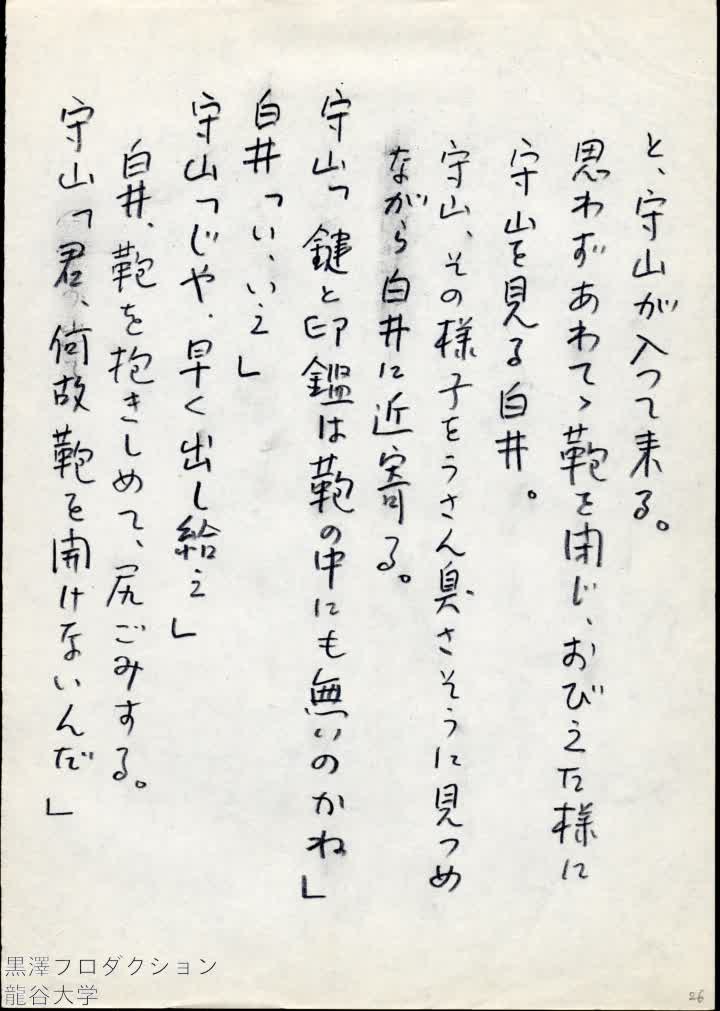 と、守山が入って来る。
思わずあわてゝ鞄を閉じ、おびえた様に
守山を見る白井。
守山、その様子をうさん臭さそうに見つめ
ながら白井に近寄る。
守山「鍵と印鑑は鞄の中にも無いのかね」
白井「い、いえ」
守山「じや、早く出し給え」
白井、鞄を抱きしめて、尻ごみする。
守山「君、何故鞄を開けないんだ」
黒澤フロダクション
龍谷大学
26